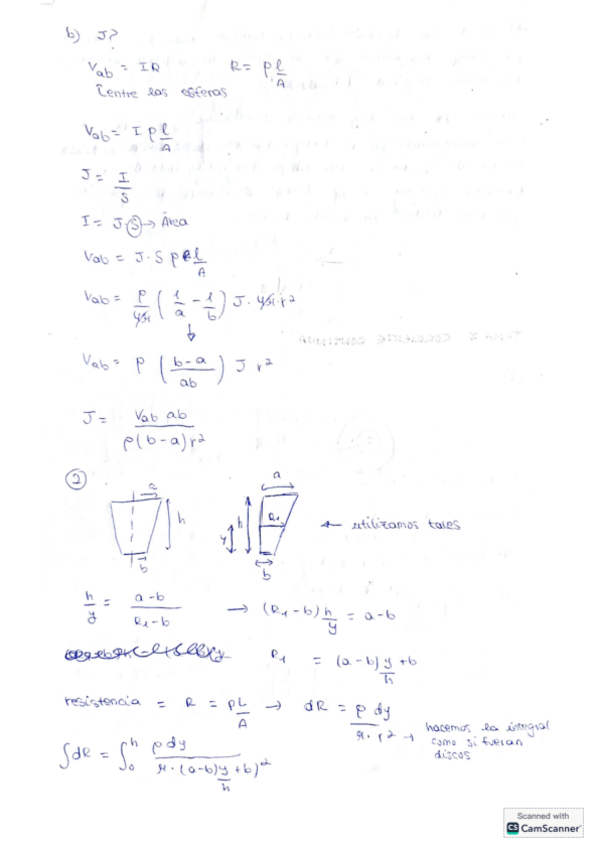 b) J?
Vab = IR R = ρ l/A
Centre las esferas
Vab = I ρ l/A
J = I/S
I = J·S → Área
Vab = J·S ρ l/A
Vab = ρ/4π (1/a - 1/b) J · 4π · r²
Vab = ρ (b-a/ab) J r²
J = Vab ab / ρ(b-a)r²
2
a
a
h
h
R1
y
b
b
← utilizamos tales
h/y = a-b / R1-b → (R1-b) h/y = a-b
R1 = (a-b) y/h + b
resistencia = R = ρL/A → dR = ρ dy / π · r² → hacemos la integral
como si fueran
discos
∫dR = ∫₀ʰ ρ dy / π · (a-b) y/h + b)²
Scanned with
CS CamScanner